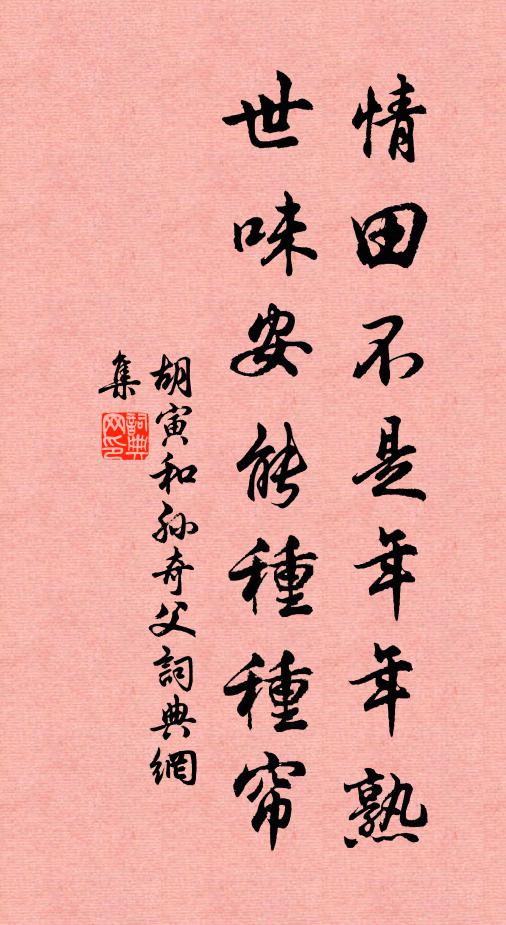 情田不是年年熟
世味安能種種帘
胡寅和孙奇父詞典網
集
詞典网印